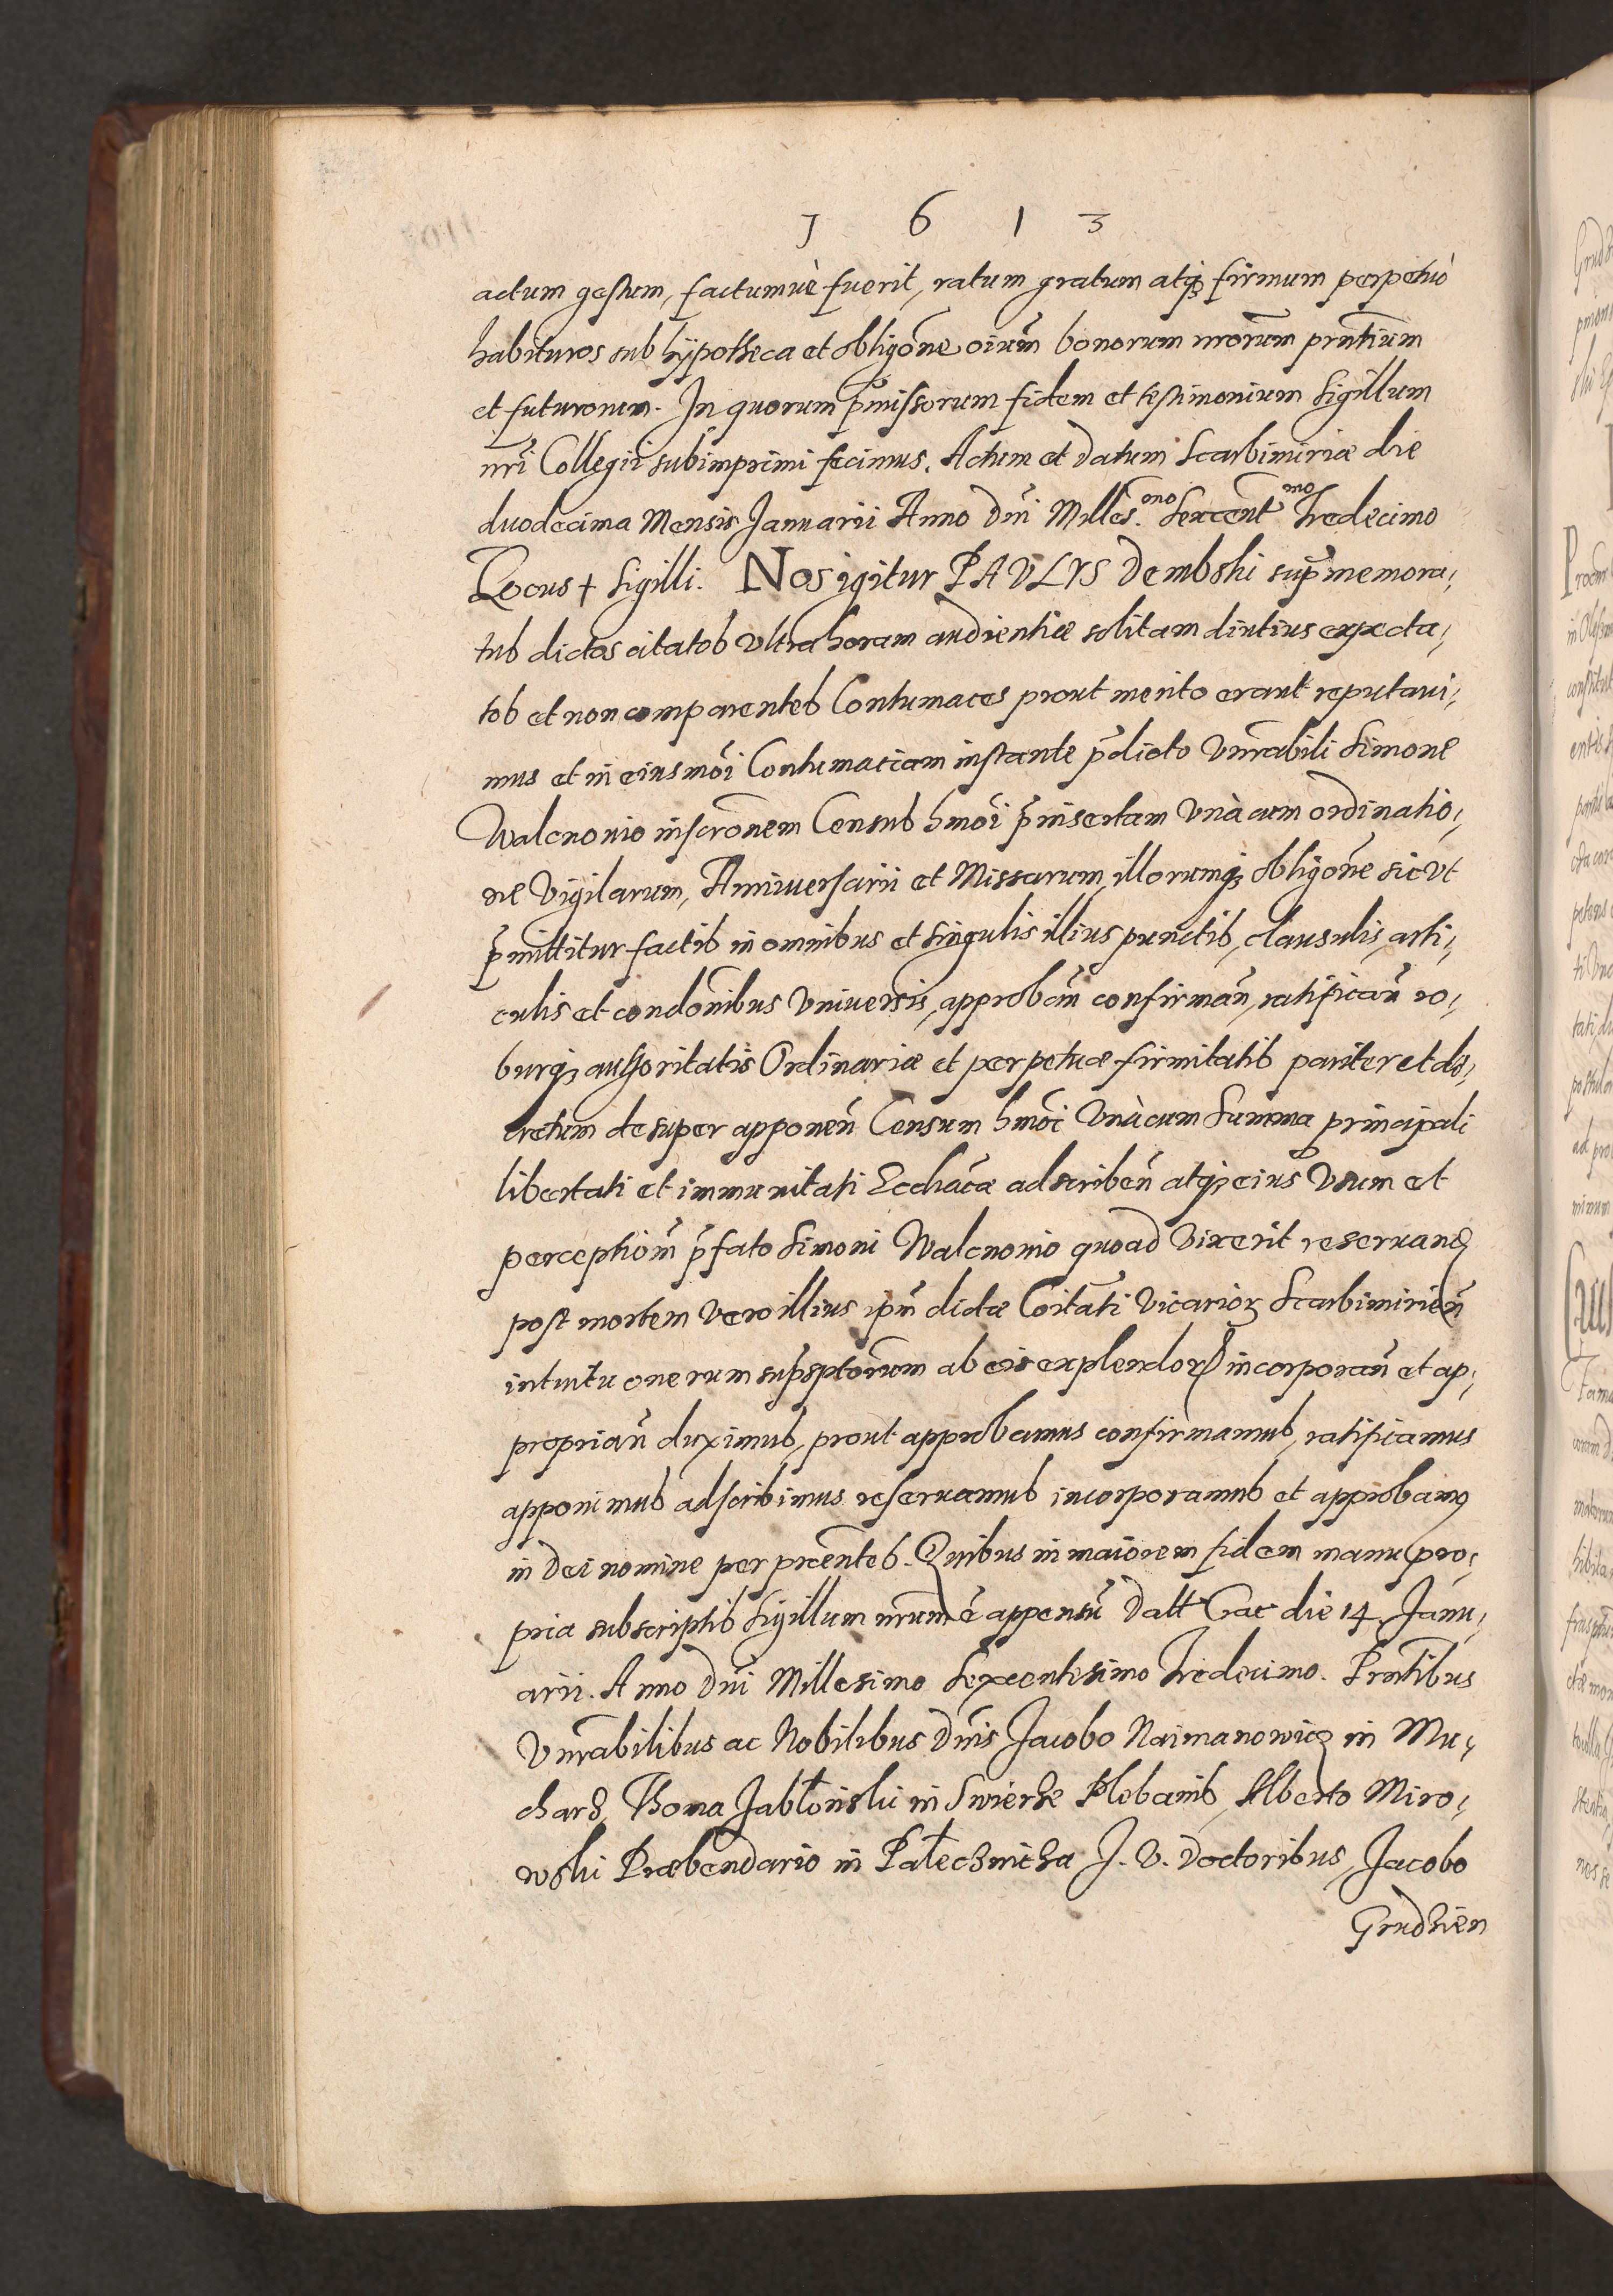 1 6 1 3
actum gestum, factumuè fuerit, ratum gratum atq3 firmum perpetuò
habituros sub hÿpotheca et obligõne oium̃ bonorum nrorum prntium
et futurorum. In quorum pmissorum fidem et testimonium Sigillum
nrĩ Collegii subimprimi fecimus. Actum et Datum Scarbimiriæ die
duodecima Mensis Januarii Anno Dñi Milles.mo Sexcent.mo Tredecimo
Locus + Sigilli. Nos igitur PAVLVS Dembski sup̃memora,
tus dictos citatos Vltra horam audientiæ solitam diutius expecta,
tos et non comparentes Contumaces prout merito erant reputaui,
mus et in eiusmõi Contumaciam instante p̃dicto Vnrabili Simone
Walcnouio inscrõnem Census hmõi p̃insertam Vnà cum ordinatio,
ne Vigilarum, Anniuersarii et Missarum, illorumq3 obligõne sic Vt
p̃mittitur factis in omnibus et singulis illius punctis, clausulis, arti,
culis et condonibus Vniuersis, approbañ confirmañ, ratificañ ro,
burq3 authoritatis Ordinariæ et perpetuæ firmitatis pariter et de,
cretum desuper apponeñ Censum hmõi Vnà cum Summa principali
libertati et immunitati Ecclïacæ adscribeñ atq3 eius Vsum et
perceptionẽ p̃fato Simoni Walcnouio quoad Vixerit reseruand
post mortem Vero illius ipm̃ dictæ Coitãti Vicarior Scarbimirieñ
intuitu onerum supsptorum ab eis explendor incorporañ et ap,
propriañ duximus, prout approbamus confirmamus, ratificamus
apponimus adscribimus reseruamus incorporamus et approbamus
in Dei nomine per prẽntes. Quibus in maiorem fidem manu pro,
pria subscriptis Sigillum nrum ẽ appensũ Datt Crac die 14 Janu,
arii. Anno Dñi Millesimo Sexcentesimo Tredecimo. Prntibus
Vnrabilibus ac Nobilibus Dñis Jacobo Naimanowicz in Mu,
charz, Thoma Jabłonski in Swierze Plebanis, Alberto Miro,
wski Præbendario in Pałecznicza J. V. Doctoribus, Jacobo
Grudzien